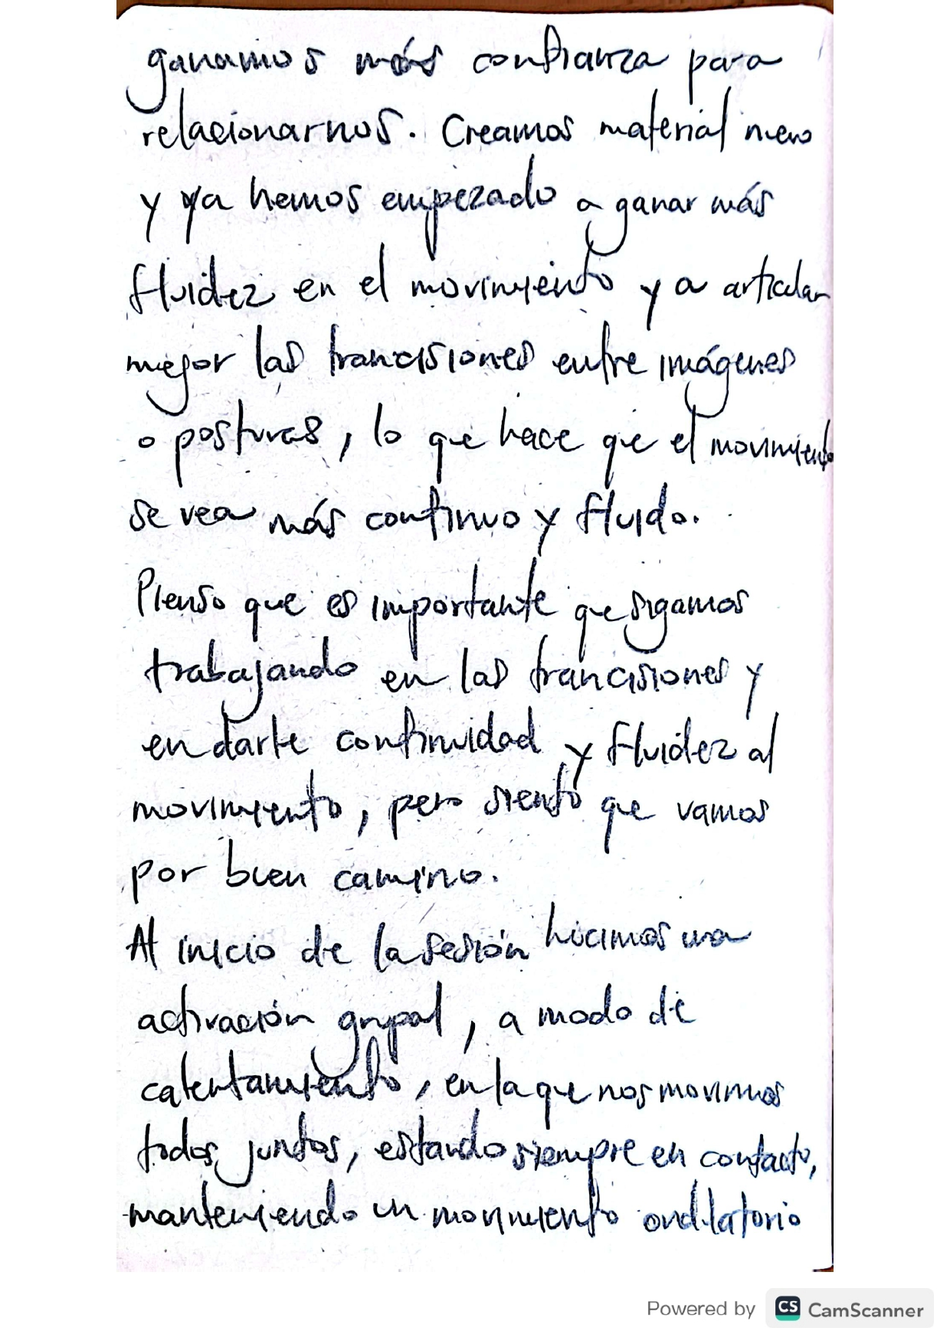 ganamos más confianza para
relacionarnos. Creamos material nuevo
y ya hemos empezado a ganar más
fluidez en el movimiento y a articular
mejor las trancisiones entre imágenes
o posturas, lo que hace que el movimiento
se vea más continuo y fluido.
Pienso que es importante que sigamos
trabajando en las trancisiones y
en darle continuidad y fluidez al
movimiento, pero siento que vamos
por buen camino.
Al inicio de la sesión hicimos una
activación grupal, a modo de
calentamiento, en la que nos movimos
todos juntos, estando siempre en contacto,
manteniendo un movimiento ondulatorio
Powered by CS CamScanner